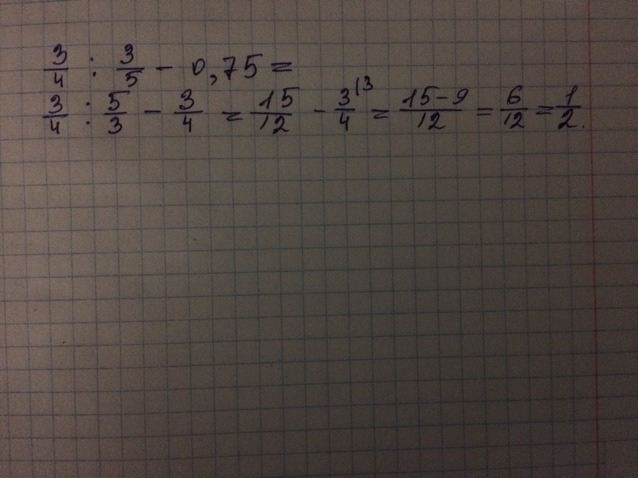 3/4 : 3/5 - 0,75 =
3/4 : 5/3 - 3/4 = 15/12 - 3/4 ⁽³ = 15-9/12 = 6/12 = 1/2.